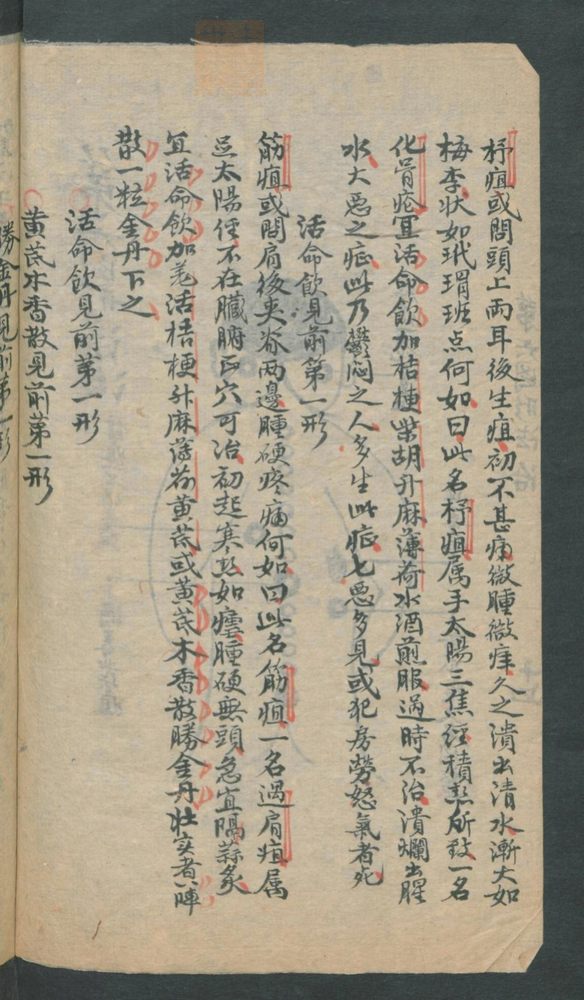 杼疽或問頭上兩耳後生疽初不甚痛微腫微痒久之潰出清水漸大如
梅李状如玳瑁班点何如曰此名杼疽属手太陽三焦経積热所致一名
化骨疮宜活命飲加桔梗柴胡升麻薄荷水酒煎服過時不治潰爛出腥
水大惡之症此乃鬱悶之人多生此症七惡多見或犯房勞怒氣者死
活命飲見前第一形
筋疽或問肩後夹脊两邊腫硬疼痛何如曰此名筋疽一名過肩疽属
足太陽経不在臟腑正穴可治初起寒热如瘧腫硬無頭急宜隔蒜灸
宜活命飲加羌活桔梗升麻薄荷黄芪或黄芪木香散勝金丹壮实者八陣
散一粒金丹下之
活命飲見前第一形
黄芪木香散見前第一形
勝金丹見前第一形